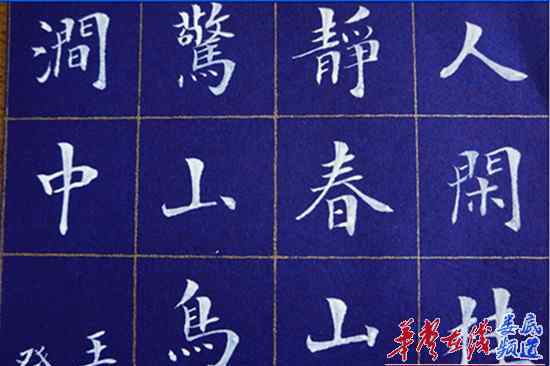 人閑桂
靜春山
驚山鳥
澗中
王
癸
华声在线
娄底
频道